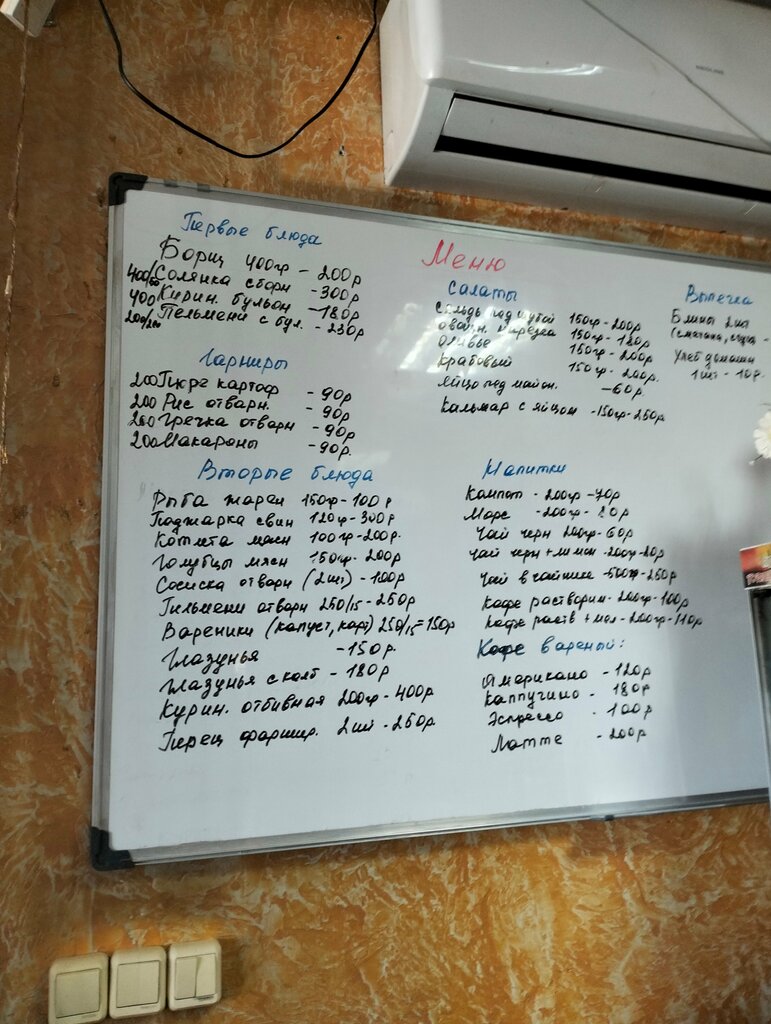 Меню
Первые блюда
Борщ 400гр - 200р
400/50 Солянка сборн - 300р
400 Курин. бульон - 180р
200/200 Пельмени с бул. - 230р
Гарниры
200 Пюре картоф - 90р
200 Рис отварн. - 90р
200 Гречка отварн - 90р
200 Макароны - 90р.
Вторые блюда
Рыба жарен 150гр - 100р
Поджарка свин 120гр - 300р
Котлета мясн 100гр - 200р.
Голубцы мясн 150гр - 200р
Сосиска отварн (2шт) - 100р
Пельмени отварн 250/15 - 250р
Вареники (капуст, карт) 250/15 = 150р
Глазунья - 150р.
Глазунья с колб - 180р
Курин. отбивная 200гр - 400р
Перец фаршир. 2шт - 260р
Салаты
Сельдь под шубой 150гр - 200р
Овощн. нарезка 150гр - 120р
Оливье 150гр - 200р
Крабовый 150гр - 200р.
Яйцо под майон. - 60р.
Кальмар с яйцом - 150гр - 250р
Напитки
Компот - 200гр - 70р
Морс - 200гр - 80р
Чай черн 200гр - 60р
Чай черн + лимон - 200гр - 80р
Чай в чайнике - 500гр - 250р
Кофе растворим - 200гр - 100р
Кофе раств + мол - 200гр - 110р
Кофе вареный:
Американо - 120р
Каппучино - 180р
Эспрессо - 100р
Латте - 200р
Выпечка
Блины 2шт
(сметана, сгущ -
Хлеб домашн
1шт - 10р.